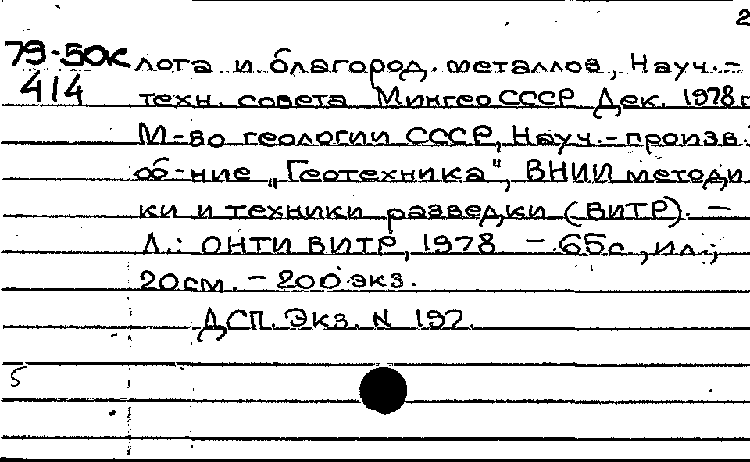 2
79-50к лота и благород. металлов, Науч.-
414 техн. совета Мингео СССР Дек. 1978г
М-во геологии СССР, Науч.-произв.
об-ние „Геотехника", ВНИИ методи
ки и техники разведки (ВИТР). —
Л.: ОНТИ ВИТР, 1978 — 65с, ил.;
20см. — 200 экз.
ДСП. Экз. N 197.
5